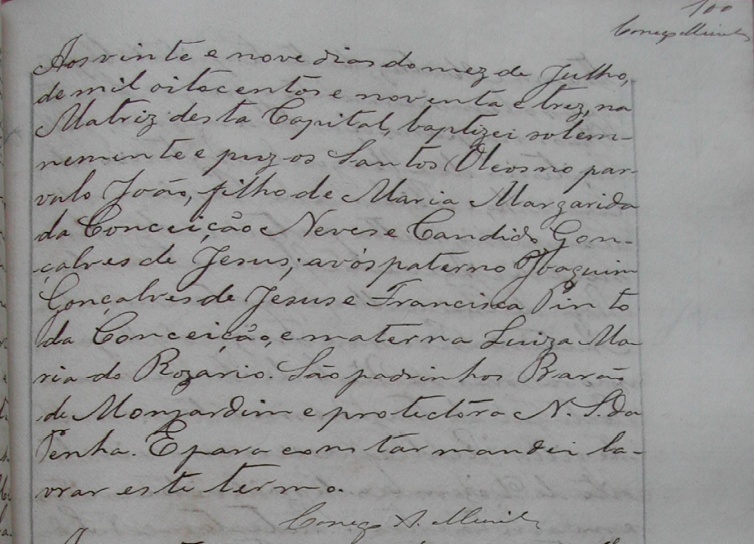 100
Conego
Aos vinte e nove dias do mez de Julho,
de mil oitocentos e noventa e trez, na
Matriz desta Capital, baptizei solem-
nemente e puz os Santos Oleos no par-
vulo João, filho de Maria Margarida
da Conceição Neves e Candido Gon-
çalves de Jesus; avós paterno Joaquim
Gonçalves de Jesus e Francisca Pinto
da Conceição, e materna Luiza Ma-
ria do Rozário. São padrinhos Barão
de Monjardim e protectôra N. S. da
Penha. E para constar mandei la-
vrar este termo.
Conego A.